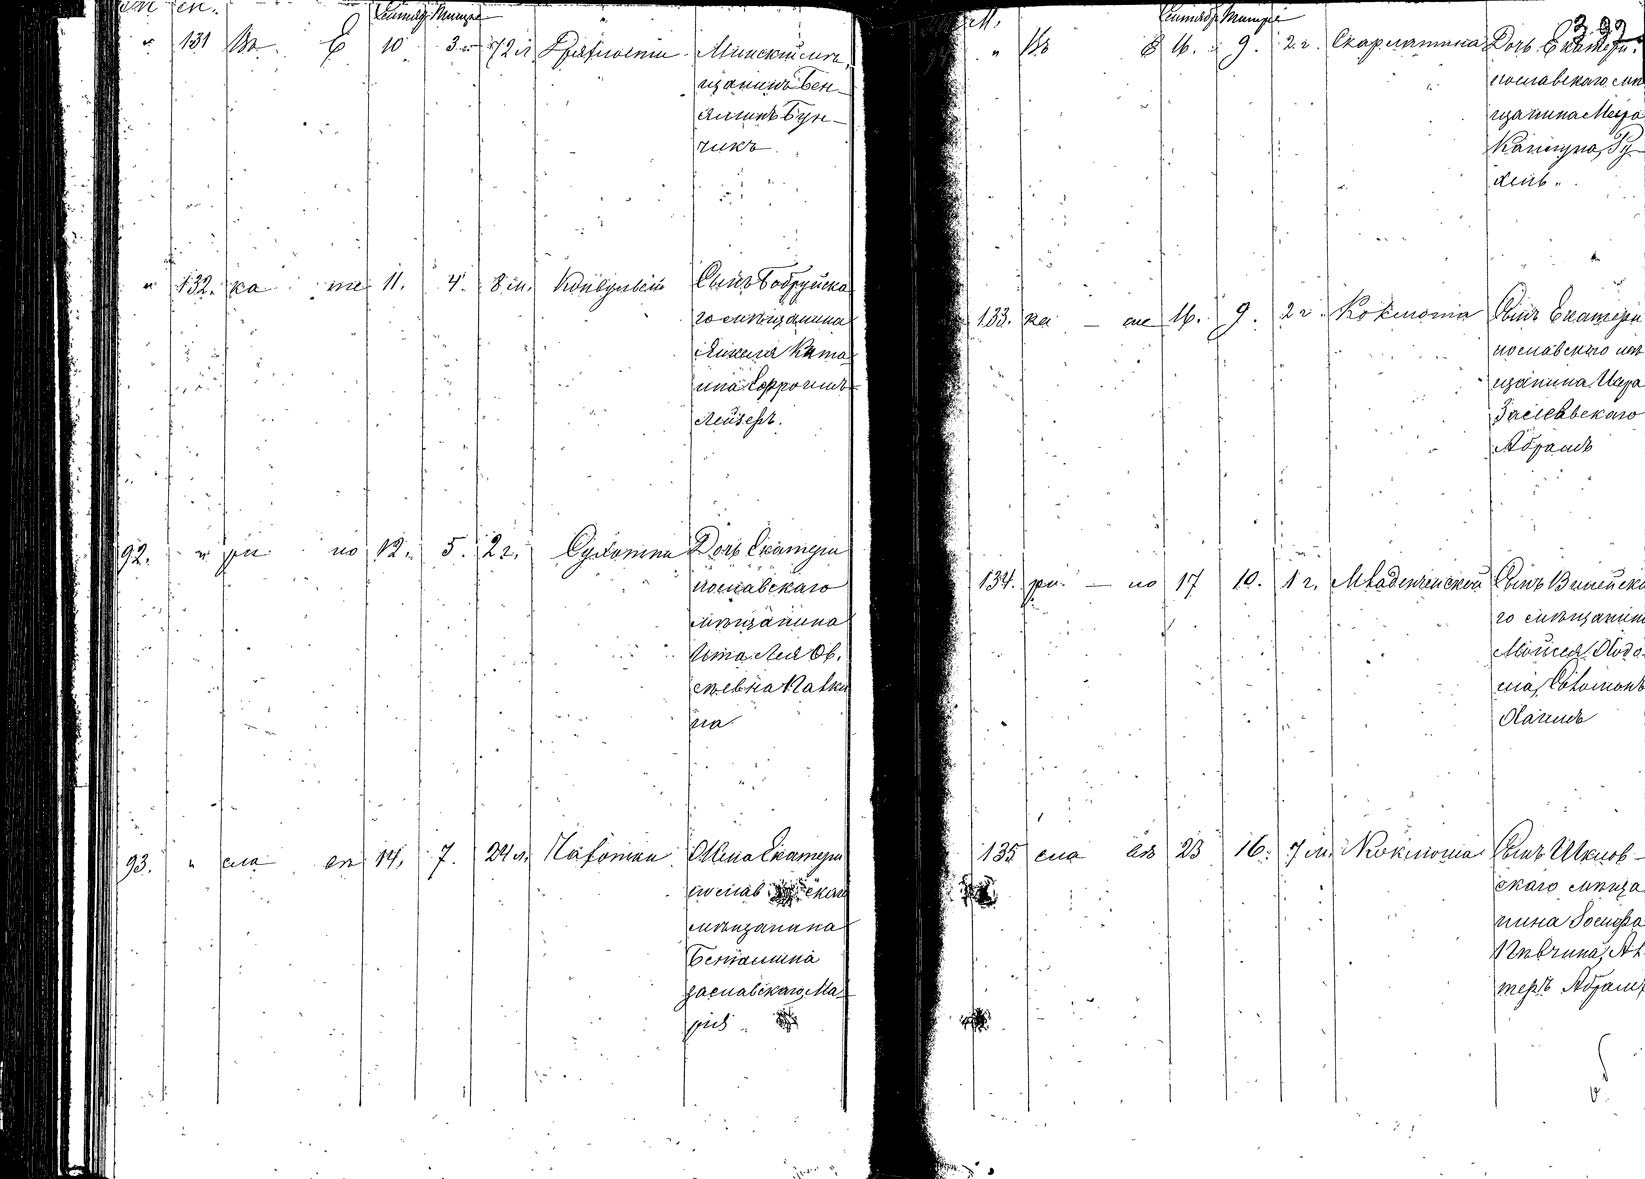 Сентяб. Тишре
" 131 Въ Е 10 3. 72 л. Дряхлости Минскій мѣ-
щанинъ Бен-
яминъ Бун-
чикъ
" 132. ка те 11. 4. 8 м. Конвульсіи Сынъ Бобруйска
го мѣщанина
Янкеля
Лейзеръ.
92. " ри но 12. 5. 2 г. Сухотки Дочь Екатери
нославскаго
мѣщанина
Ита Лея Ов.
сѣевна
на
93. " сла въ 14. 7. 24 л. Чахотки Жена Екатери
нослав скаго
мѣщанина
Беньямина
Заславскаго, Ма-
рія
М.
Сентябр. Тишре
392
" Въ Е 16. 9. 2 г. Скарлатина Дочь Екатери.
нославскаго мѣ
щанина Меера
день.
133. ка – те 16. 9. 2 г. Коклюша Сынъ Екатери
нославскаго мѣ
щанина
Заславскаго
Абрамъ
134. ри – но 17 10. 1 г. Младенческой Сынъ Вилейска
го мѣщанина
Мойсея
Соломонъ
135 сла въ 23 16. 7 м. Коклюша Сынъ Шклов-
скаго мѣща
нина Іосифа
Пѣвчина, Ал
теръ Абрамъ